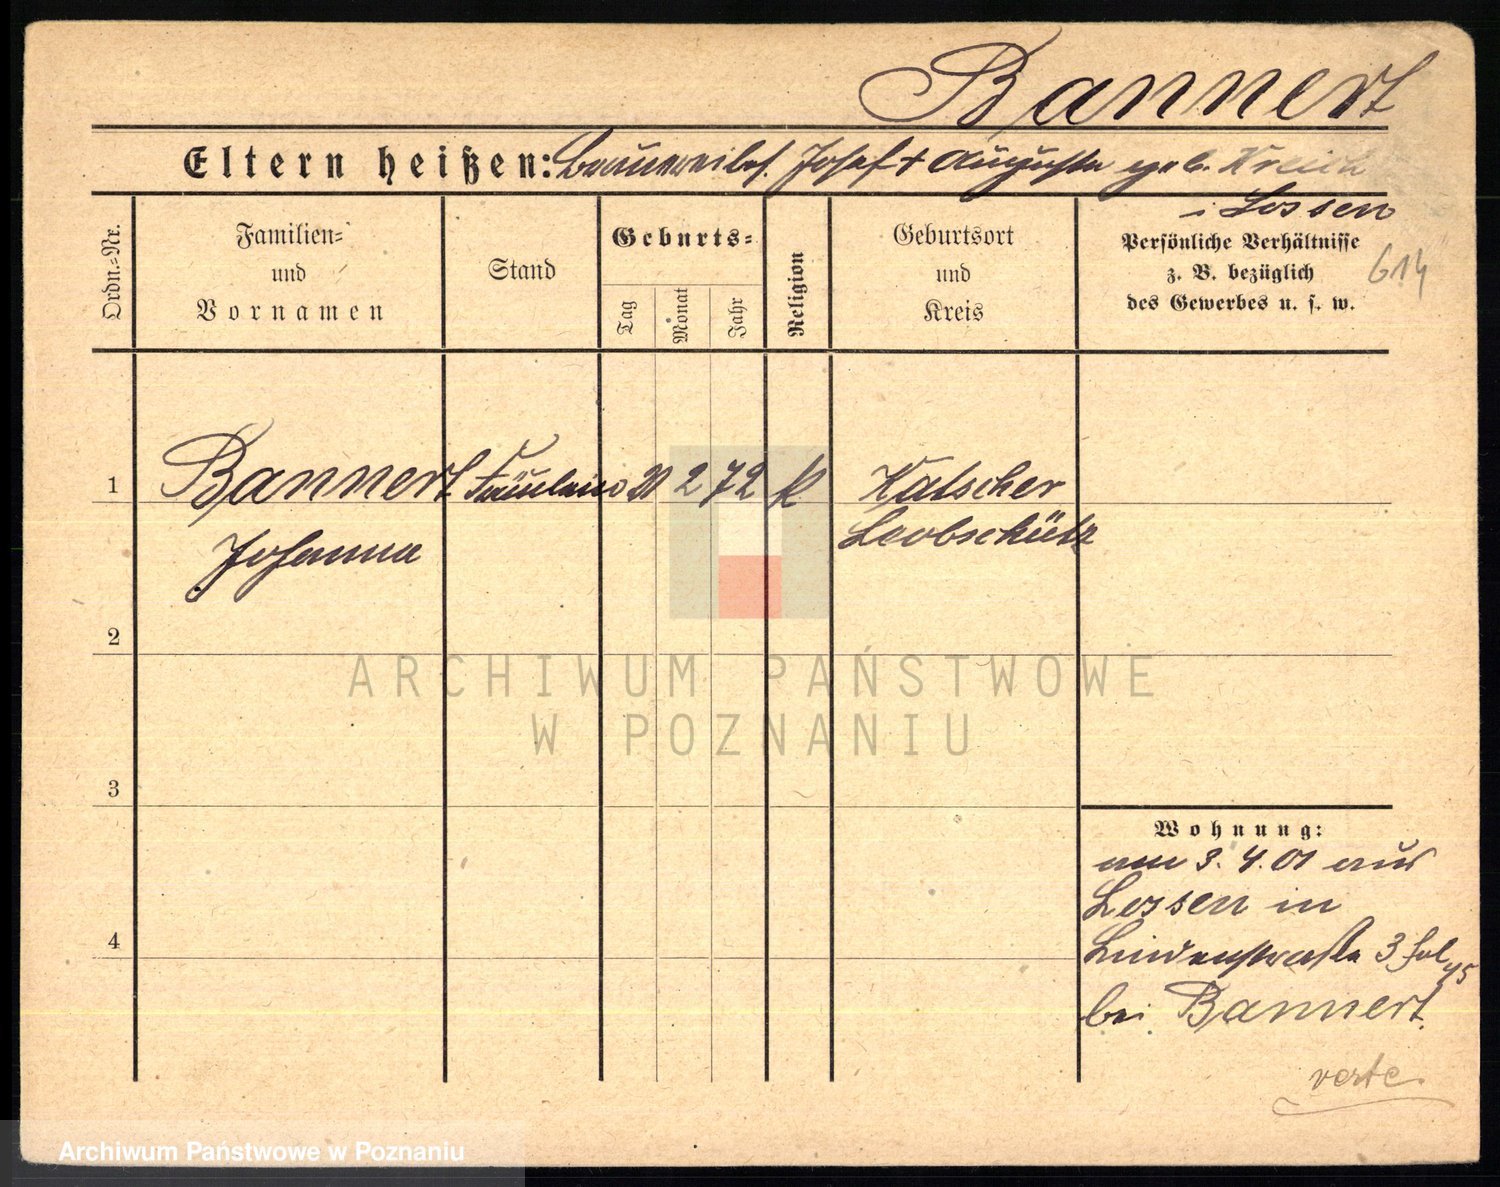 Bannert
Eltern heißen: Brauereibes. Josef + Auguste geb. Kreich
i Lossen
Ordn.-Nr.
Familien-
und
Vornamen
Stand
Geburts-
Tag
Monat
Jahr
Religion
Geburtsort
und
Kreis
Persönliche Verhältnisse
z. B. bezüglich
des Gewerbes u. s. w.
614
1
Bannert Fräulein 2 72 k Katscher
Johanna Leobschütz
2
3
4
Wohnung:
am 3. 4. 01 aus
Lossen in
Lindenstraße 3
bei Bannert.
verte.
ARCHIWUM PAŃSTWOWE
W POZNANIU
Archiwum Państwowe w Poznaniu